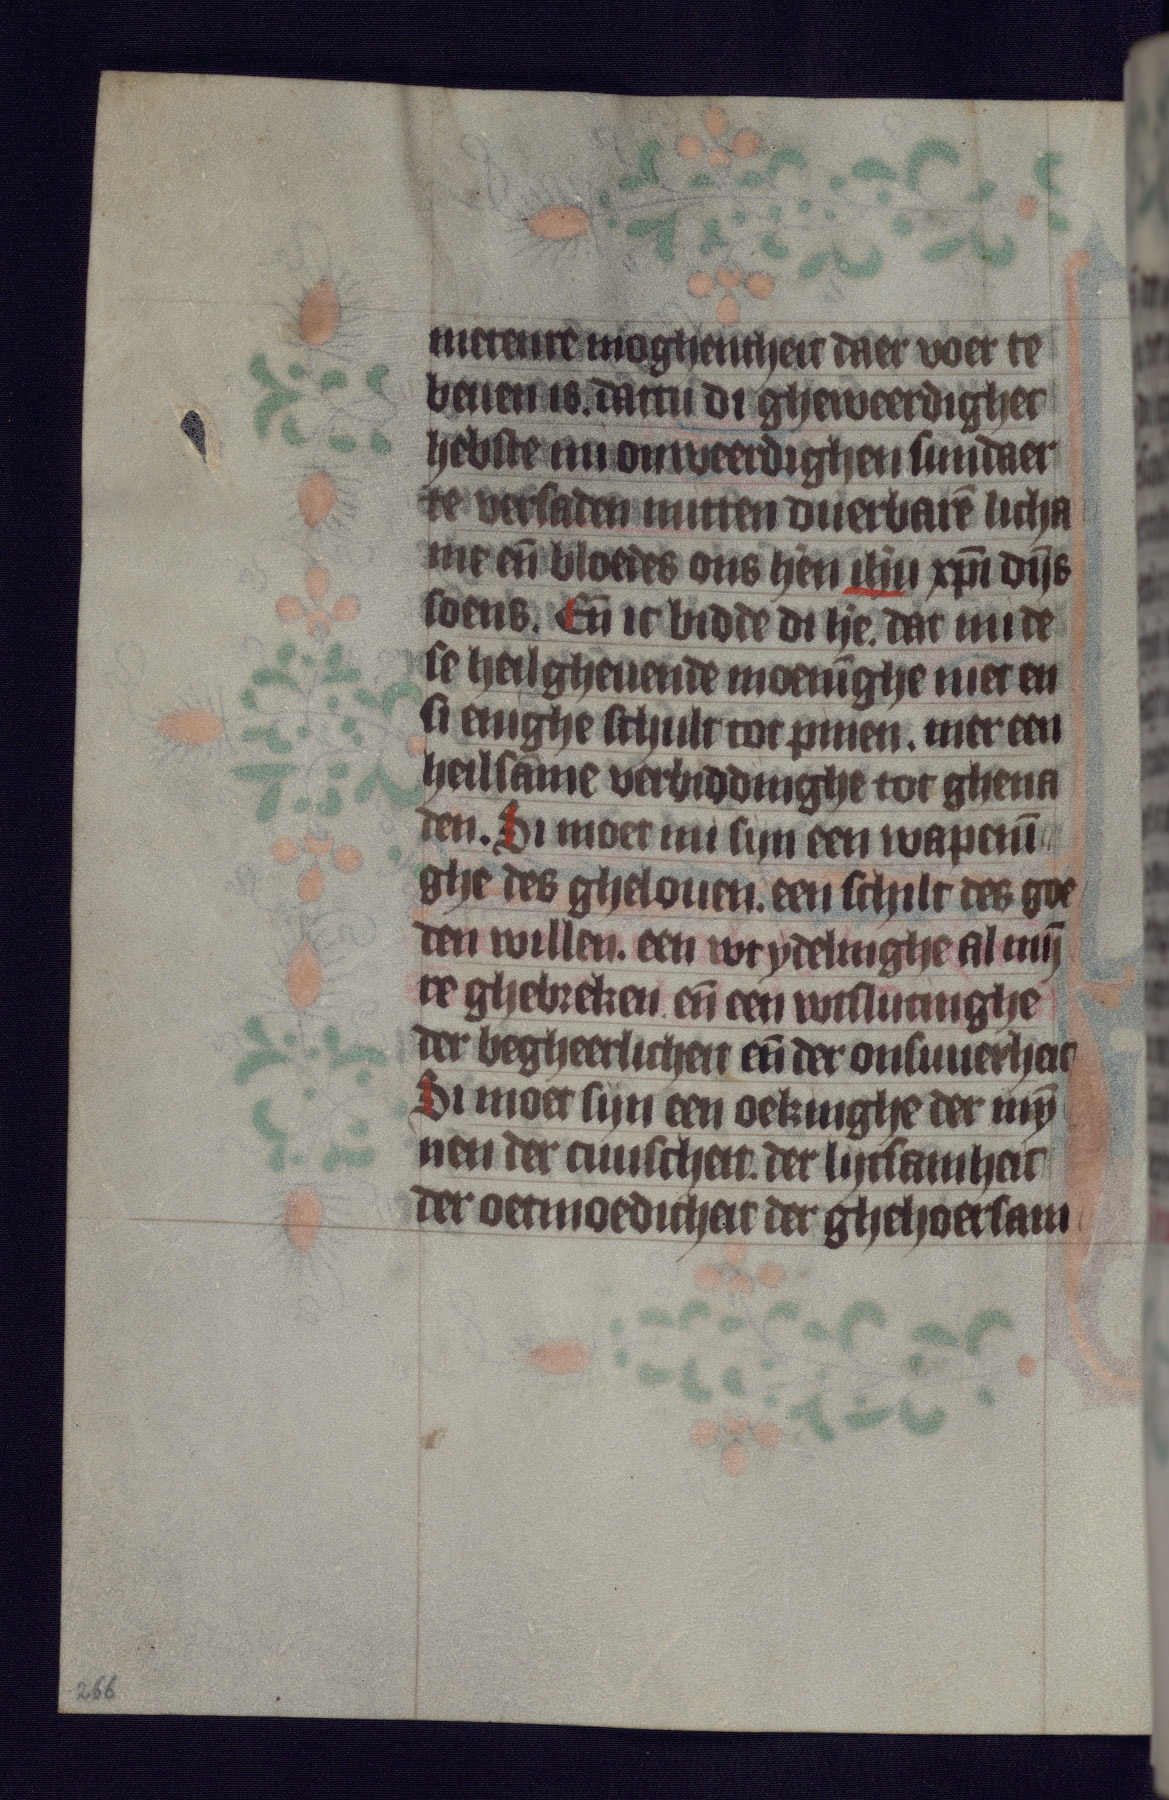 meteure moghentheit daer voer te
beuen is. dattu di gheweerdighet
hebste mi onweerdighen sundaer
te versaden mitten duerbarē licha
me en̄ bloedes ons hēn ihū xp̄i dijns
soens. En̄ ic bidde di hē. dat mi de
se heilgheuende moenīghe niet en
si enighe schult tot pinen. mer een
heilsame verbiddinghe tot ghena
den. Si moet mi sijn een wapenī
ghe des ghelouen. een schilt des goe
den willen. een wtydelinghe al mijn̄
re ghebreken en̄ een wtslutinghe
der begheerlicheit en̄ der onsuuerheit
Si moet sijn een oekinghe der mȳ
nen der cuuscheit. der lijtsamheit
der oetmoedicheit der ghehoersam
266